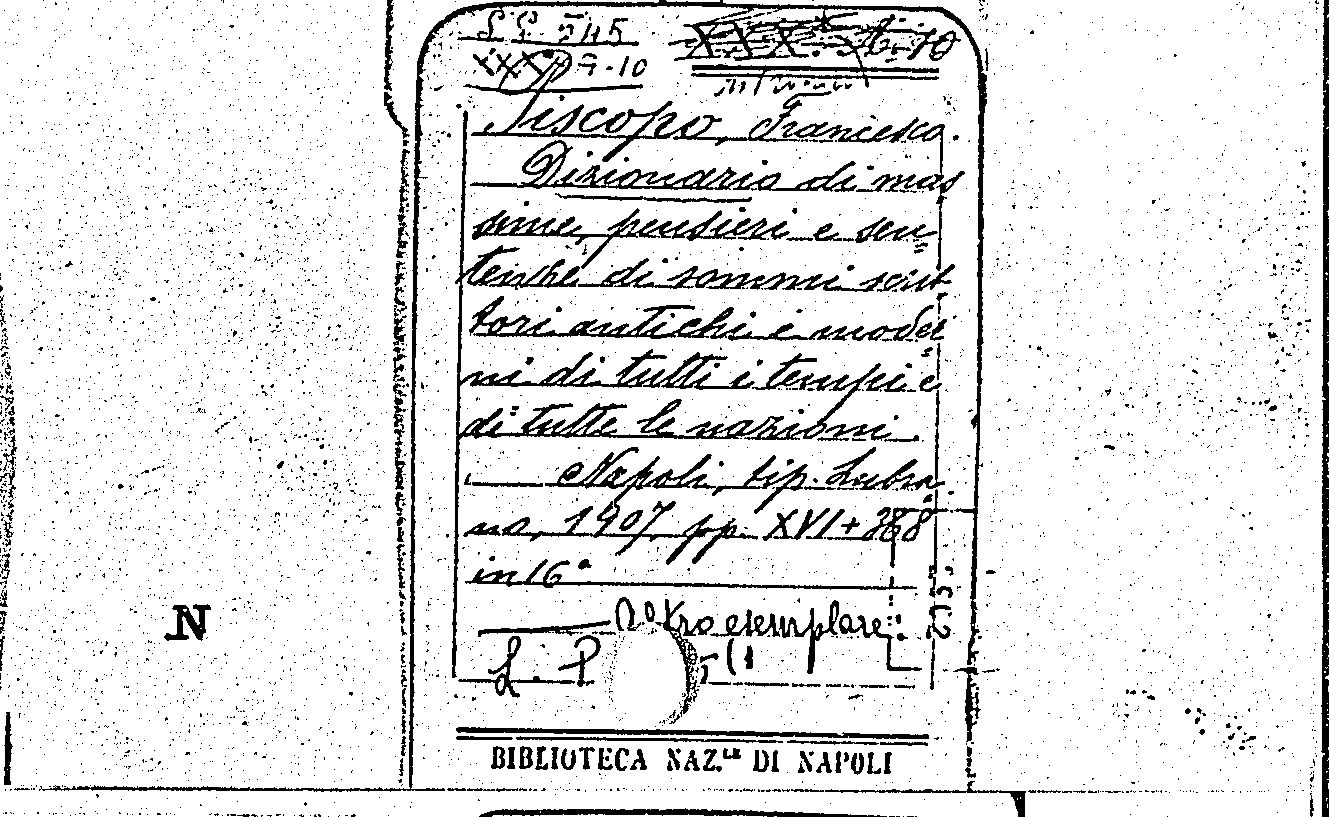 L. P. 545
XXX. A. 10
A-10
Piscopo, Francesco.
Dizionario di mas
sime, pensieri e sen=
tenze di sommi scrit
tori antichi e moder=
ni di tutti i tempi e
di tutte le nazioni.
Napoli, tip. Lubra
no, 1907 pp. XVI + 388
in 16°
Altro esemplare:
L. P.
N
BIBLIOTECA NAZ.LE DI NAPOLI